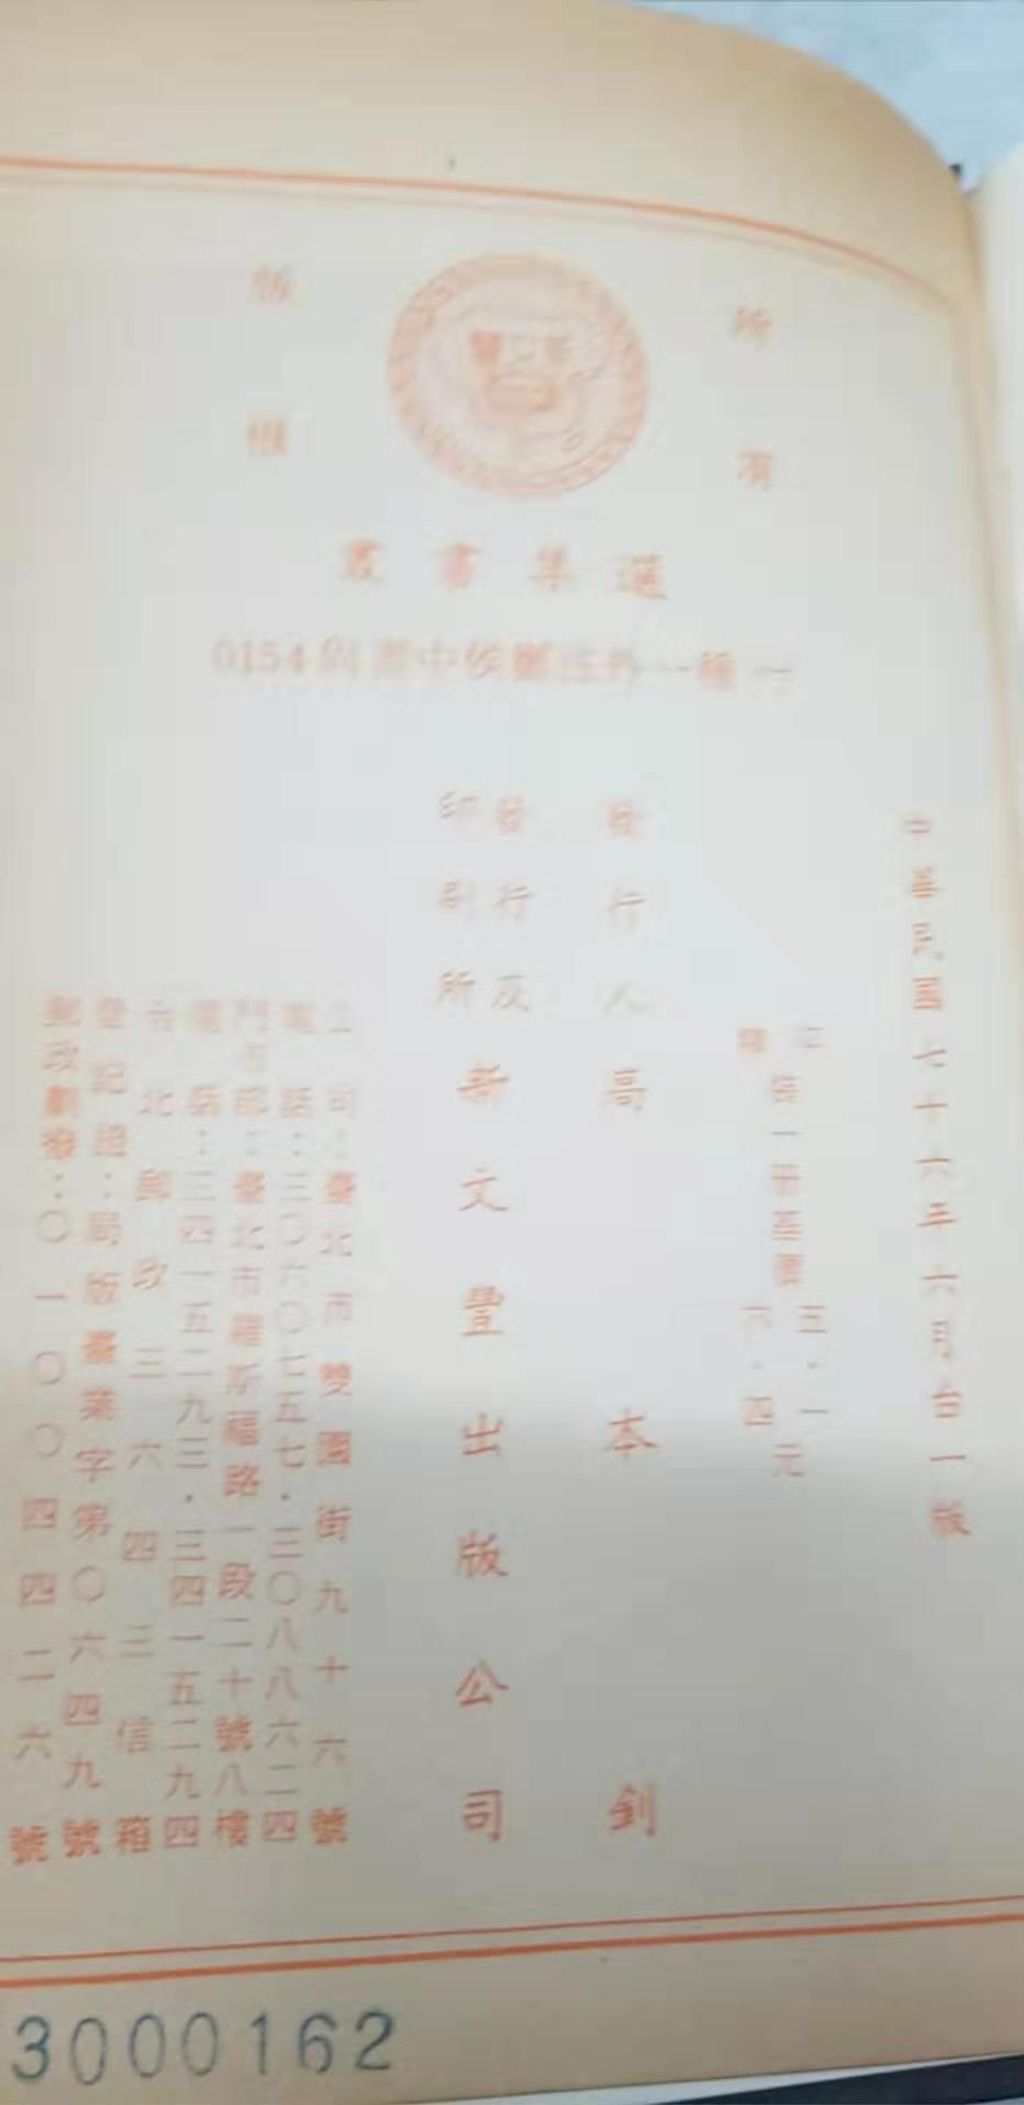 版權
所有
叢書集選
0154 尚書中候鄭注外一種一
中華民國七十六年六月台一版
五·一
六·四元
發行人 高本釗
發行及
印刷所
新文豐出版公司
公司：臺北市雙園街九十六號
電話：三〇六〇七五七·三〇八八六二四
門市部：臺北市羅斯福路一段二十號八樓
電話：三四一五二九三·三四一五二九四
台北郵政三六四三信箱
登記證：局版臺業字第〇六四九號
郵政劃撥：〇一〇〇四四二六號
3000162